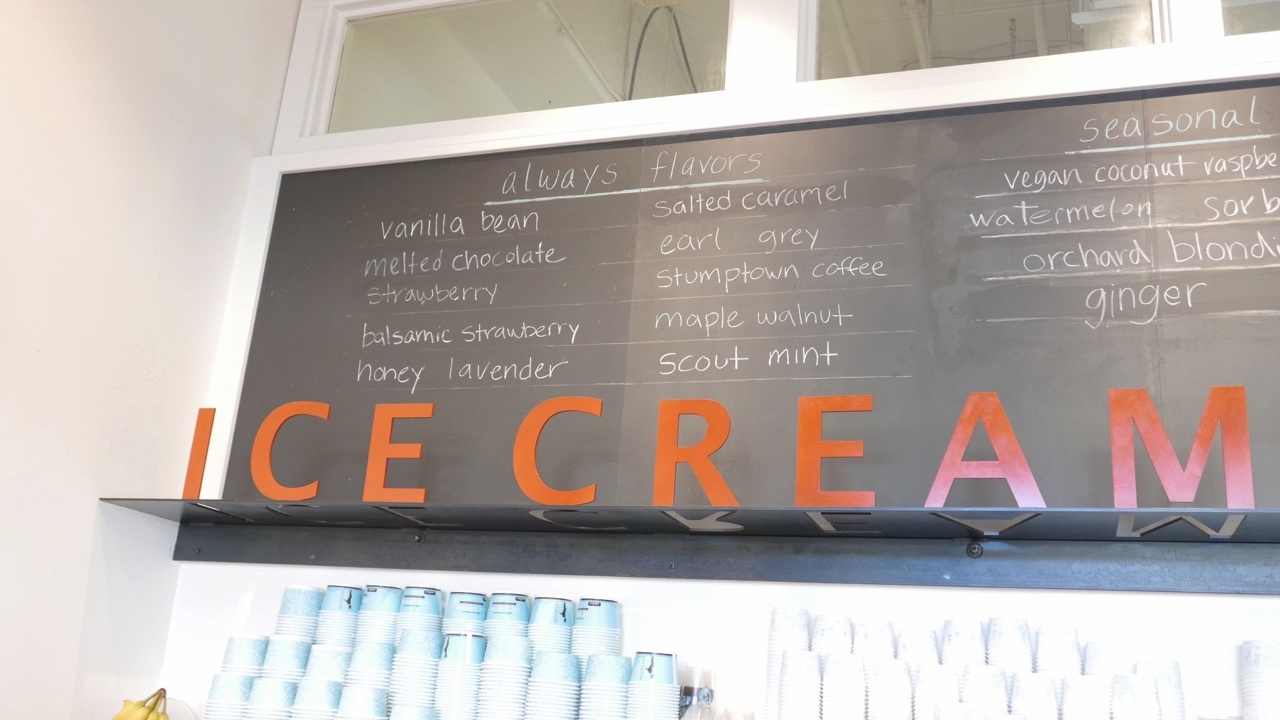 always flavors
vanilla bean
melted chocolate
strawberry
balsamic strawberry
honey lavender
salted caramel
earl grey
stumptown coffee
maple walnut
scout mint
seasonal
vegan coconut raspbe
watermelon sorb
orchard blondi
ginger
ICE CREAM